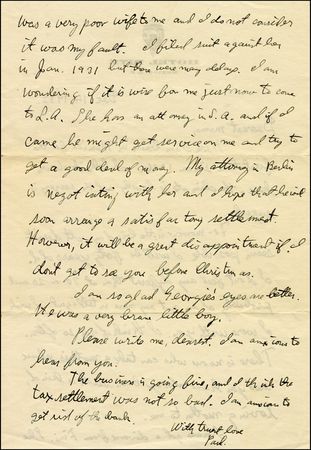 was a very poor wife to me and I do not consider
it was my fault. I filed suit against her
in Jan. 1931 but there were may delays. I am
wondering if it is wise for me just now to come
to L.A. She has an attorney in L.A. and if I
came he might get service on me and try to
get a good deal of money. My attorney in Berlin
is negotiating with her and I hope that he will
soon arrange a satisfactory settlement.
However, it will be a great disappointment if I
don't get to see you before Christmas.
I am so glad Georgie's eyes are better.
He was a very brave little boy.
Please write me, dearest. I am anxious to
hear from you.
The business is going fine, and I think the
tax settlement was not so bad. I am anxious to
get rid of the bank.
With truest love
Paul.